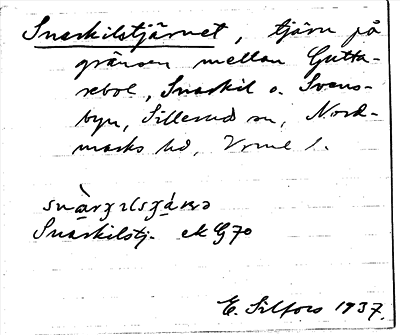 Snarkilstjärnet, tjärn på
gränsen mellan Gutta-
rebol, Snarkil o. Svens-
byn, Sillerud sn, Nord-
marks hd, Vrml l.
Snarkilstj. ek G70
E. Silfors 1937.